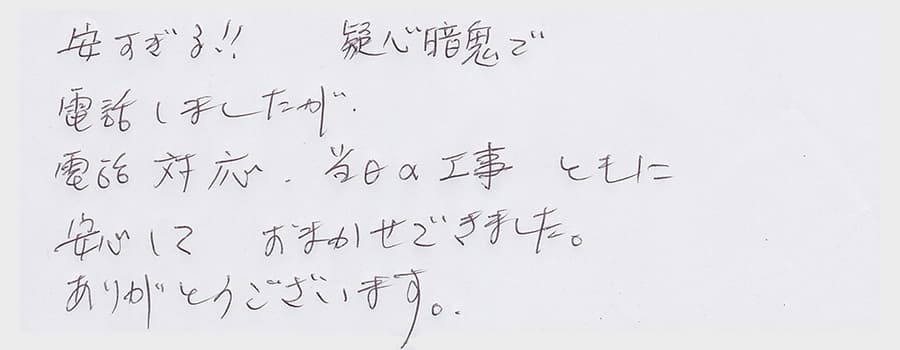 安すぎる!! 疑心暗鬼で
電話しましたが、
電話対応、当日の工事 ともに
安心して おまかせできました。
ありがとうございます。